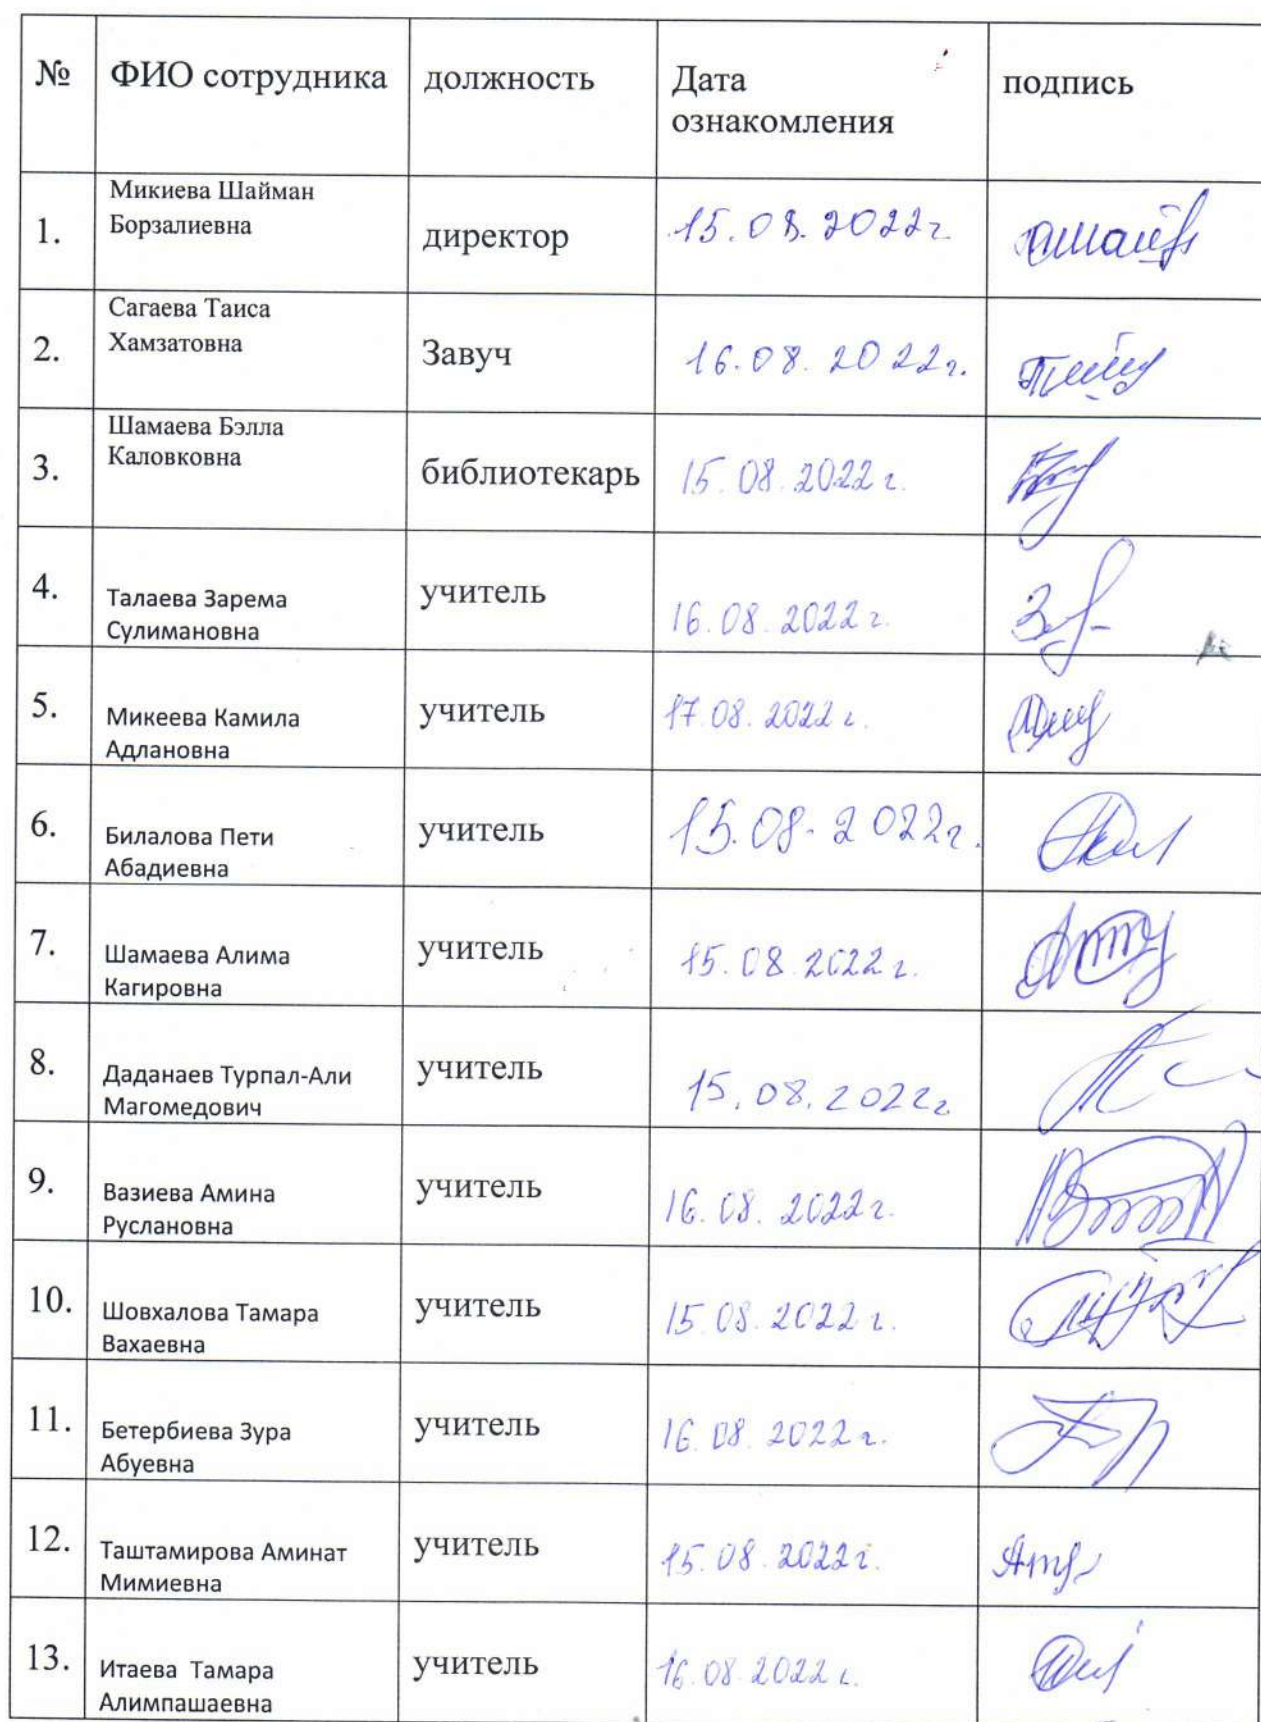 № ФИО сотрудника должность Дата ознакомления подпись
1. Микиева Шайман
Борзалиевна директор 15.08.2022г
2. Сагаева Таиса
Хамзатовна Завуч 16.08.2022г.
3. Шамаева Бэлла
Каловковна библиотекарь 15.08.2022г.
4. Талаева Зарема
Сулимановна учитель 16.08.2022г.
5. Микеева Камила
Адлановна учитель 17.08.2022г.
6. Билалова Пети
Абадиевна учитель 15.08.2022г.
7. Шамаева Алима
Кагировна учитель 15.08.2022г.
8. Даданаев Турпал-Али
Магомедович учитель 15.08.2022г
9. Вазиева Амина
Руслановна учитель 16.08.2022г.
10. Шовхалова Тамара
Вахаевна учитель 15.08.2022г.
11. Бетербиева Зура
Абуевна учитель 16.08.2022г.
12. Таштамирова Аминат
Мимиевна учитель 15.08.2022г.
13. Итаева Тамара
Алимпашаевна учитель 16.08.2022г.